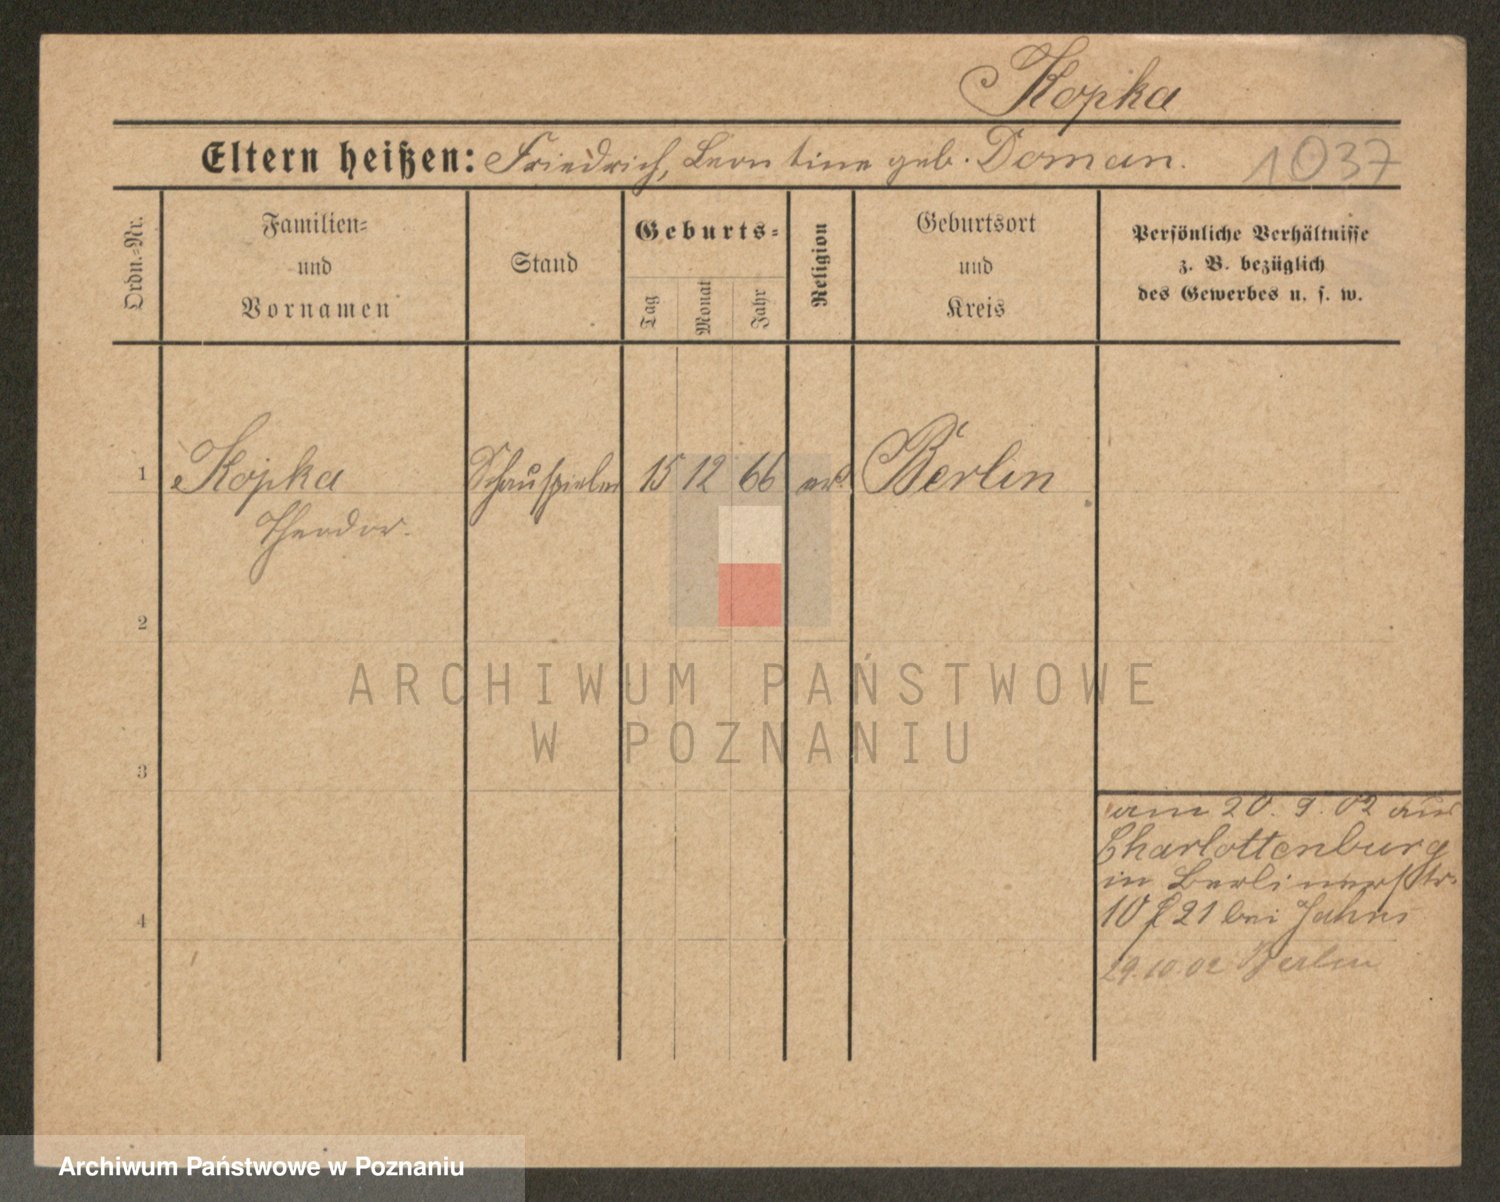 Kopka
Eltern heißen: Friedrich, Leontine geb. Doman.
1037
Ordn.-Nr.
Familien-
und
Vornamen
Stand
Geburts-
Tag
Monat
Jahr
Religion
Geburtsort
und
Kreis
Persönliche Verhältnisse
z. B. bezüglich
des Gewerbes u. s. w.
1 Kopka Schauspieler 15 12 66 Berlin
Theodor.
2
3
4
ARCHIWUM PAŃSTWOWE
W POZNANIU
am 20. 9. 02 aus
Charlottenburg
in Berlinerstr.
10 21 bei Jahns
29.10.02 Berlin
Archiwum Państwowe w Poznaniu